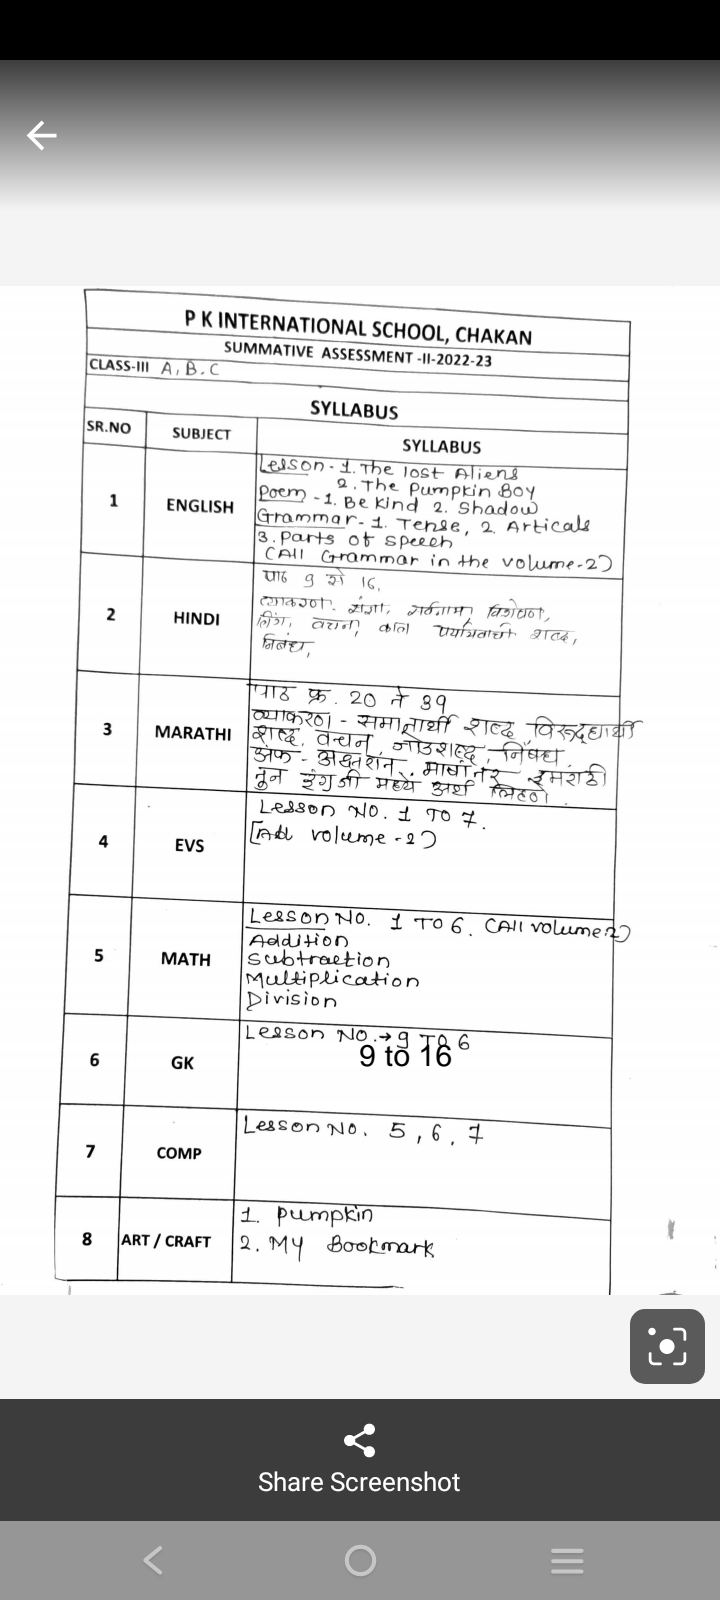 P K INTERNATIONAL SCHOOL, CHAKAN
SUMMATIVE ASSESSMENT -II-2022-23
CLASS-III A, B, C
SYLLABUS
SR.NO SUBJECT SYLLABUS
1 ENGLISH
Lesson - 1. The lost Aliens
2. The Pumpkin Boy
Poem - 1. Be kind 2. Shadow
Grammar - 1. Tense, 2. Articals
3. Parts of speech
(All Grammar in the volume-2)
2 HINDI
पाठ 9 से 16,
व्याकरण- संज्ञा, सर्वनाम, विशेषण,
लिंग, वचन, काल पर्यायवाची शब्द,
निबंध,
3 MARATHI
पाठ क्र. 20 ते 39
व्याकरण - समानार्थी शब्द, विरूद्धार्थी
शब्द, वचन, जोडशब्द, निबंध,
अंक - अक्षरात,
तून इंग्रजी मध्ये अर्थ लिहणे.
4 EVS
Lesson NO. 1 TO 7.
[All volume -2)
5 MATH
Lesson NO. 1 TO 6. (All volume-2)
Addition
Subtraction
Multiplication
Division
6 GK
Lesson NO.→9 TO 6
9 to 16
7 COMP
Lesson NO. 5, 6, 7
8 ART / CRAFT
1. Pumpkin
2. MY Bookmark
Share Screenshot